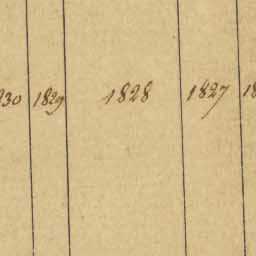 830 1829 1828 1827 18